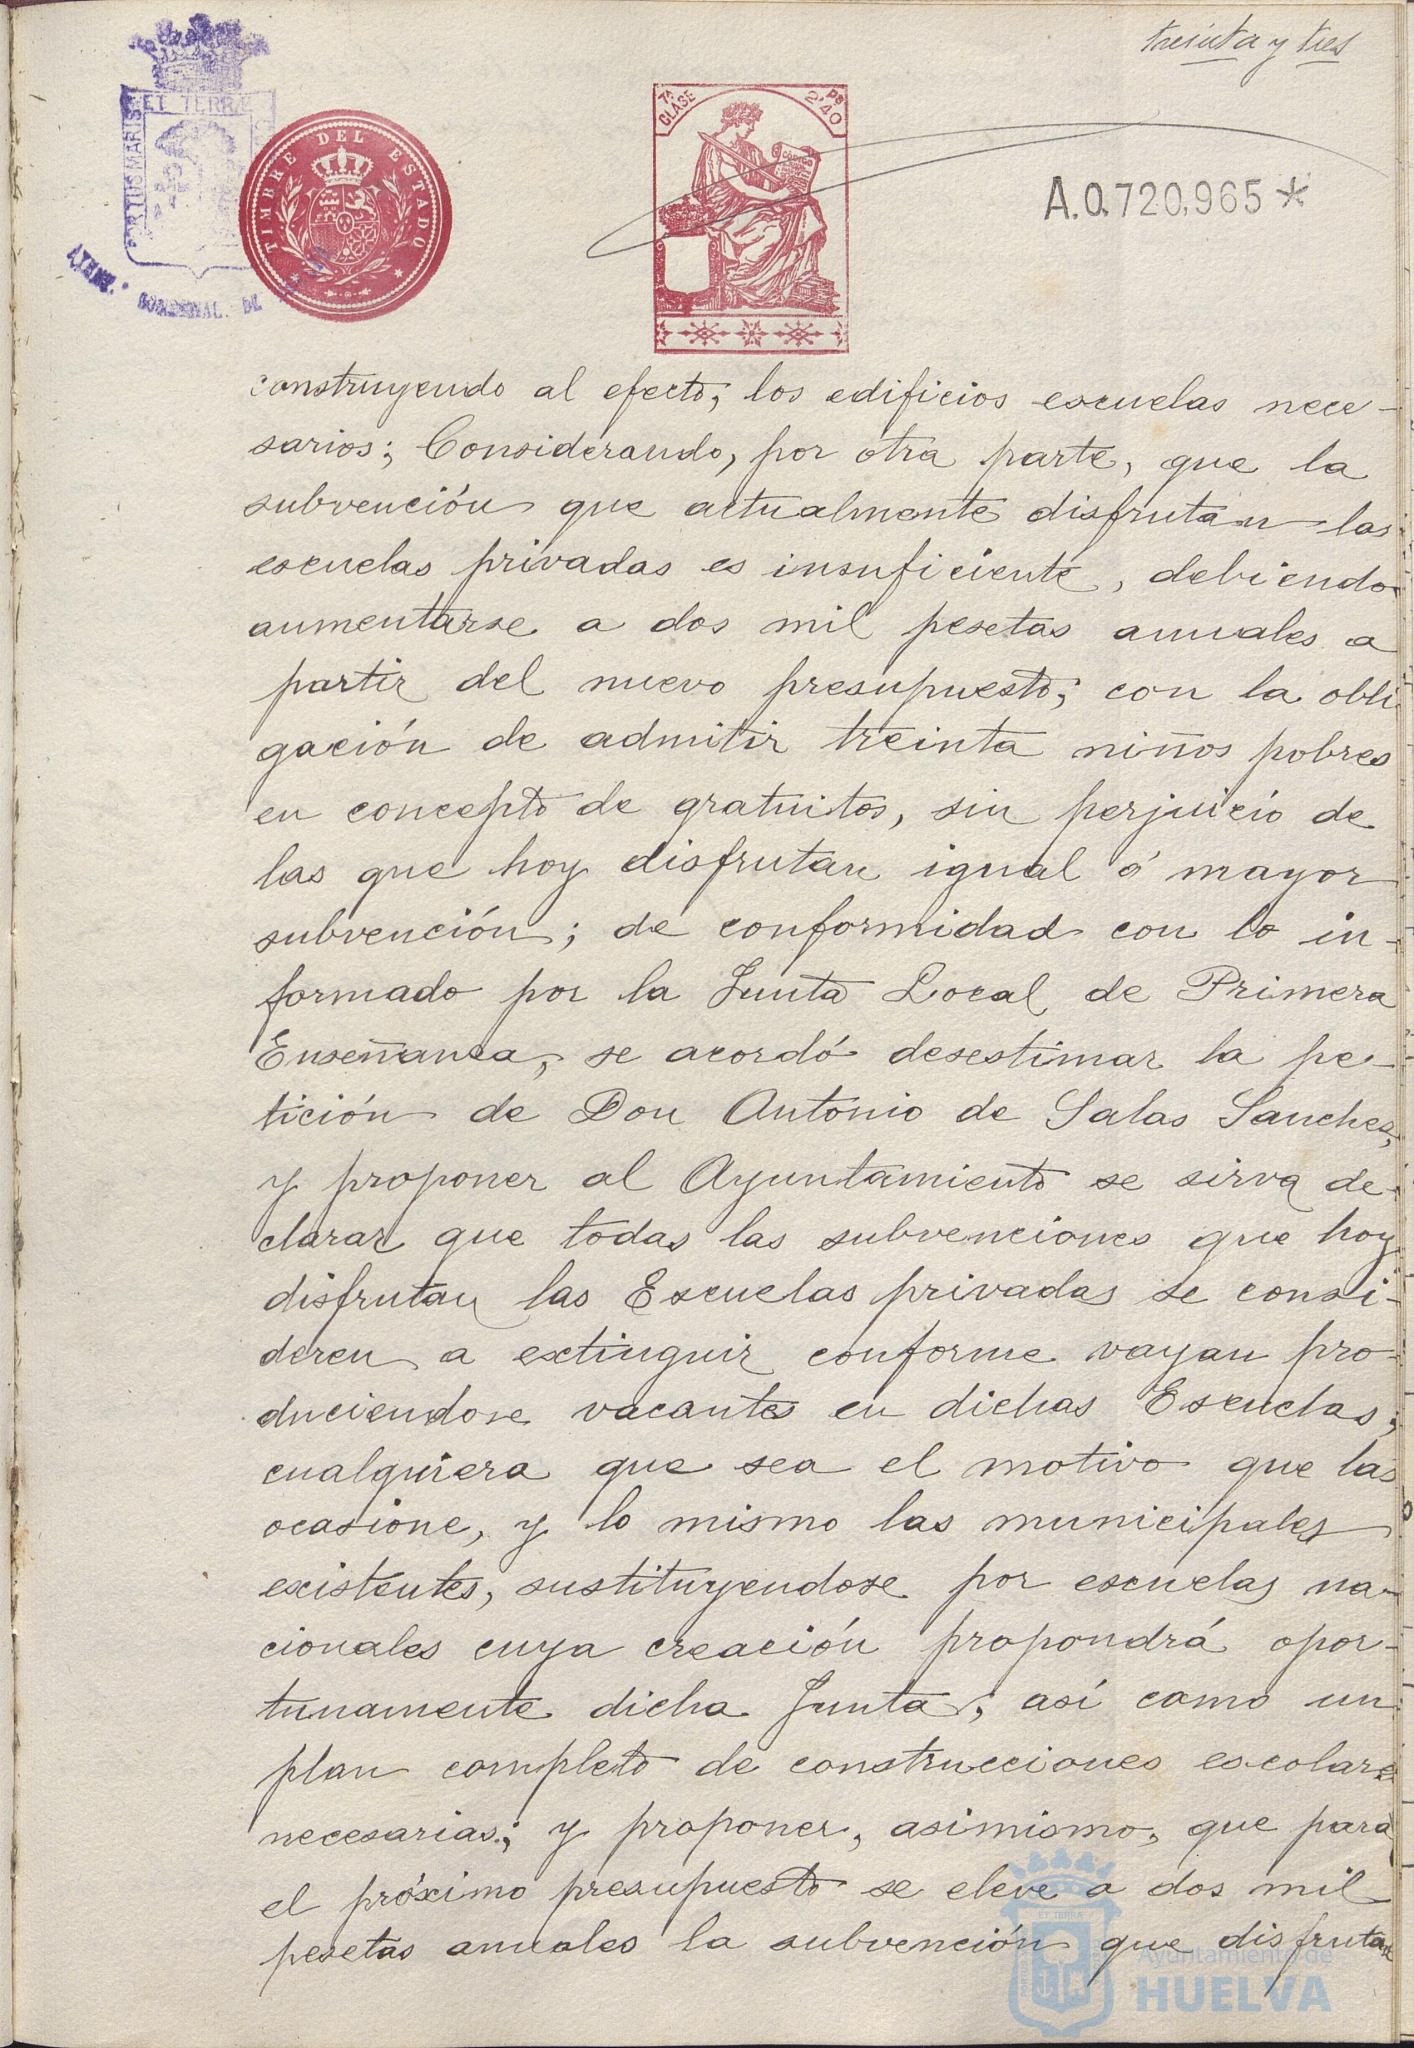 treinta y tres
PORTUS MARIS ET TERRÆ
TIMBRE DEL ESTADO
7ª CLASE
2'40 PS
A.0.720,965*
construyendo al efecto, los edificios escuelas nece-
sarios; Considerando, por otra parte, que la
subvención que actualmente disfrutan las
escuelas privadas es insuficiente, debiendo
aumentarse a dos mil pesetas anuales a
partir del nuevo presupuesto; con la obli
gación de admitir treinta niños pobres
en concepto de gratuitos, sin perjuicio de
las que hoy disfrutan igual ó mayor
subvención; de conformidad con lo in-
formado por la Junta Local de Primera
Enseñanza, se acordó desestimar la pe-
tición de Don Antonio de Salas Sanchez,
y proponer al Ayuntamiento se sirva de-
clarar que todas las subvenciones que hoy
disfrutan las Escuelas privadas se consi-
deren a extinguir conforme vayan pro-
duciendose vacantes en dichas Escuelas,
cualquiera que sea el motivo que las
ocasione, y lo mismo las municipales
existentes, sustituyendose por escuelas na-
cionales cuya creación propondrá opor-
tunamente dicha Junta, así como un
plan completo de construcciones escolares
necesarias; y proponer, asimismo, que para
el próximo presupuesto se eleve a dos mil
pesetas anuales la subvención que disfrutan
Ayuntamiento de
HUELVA